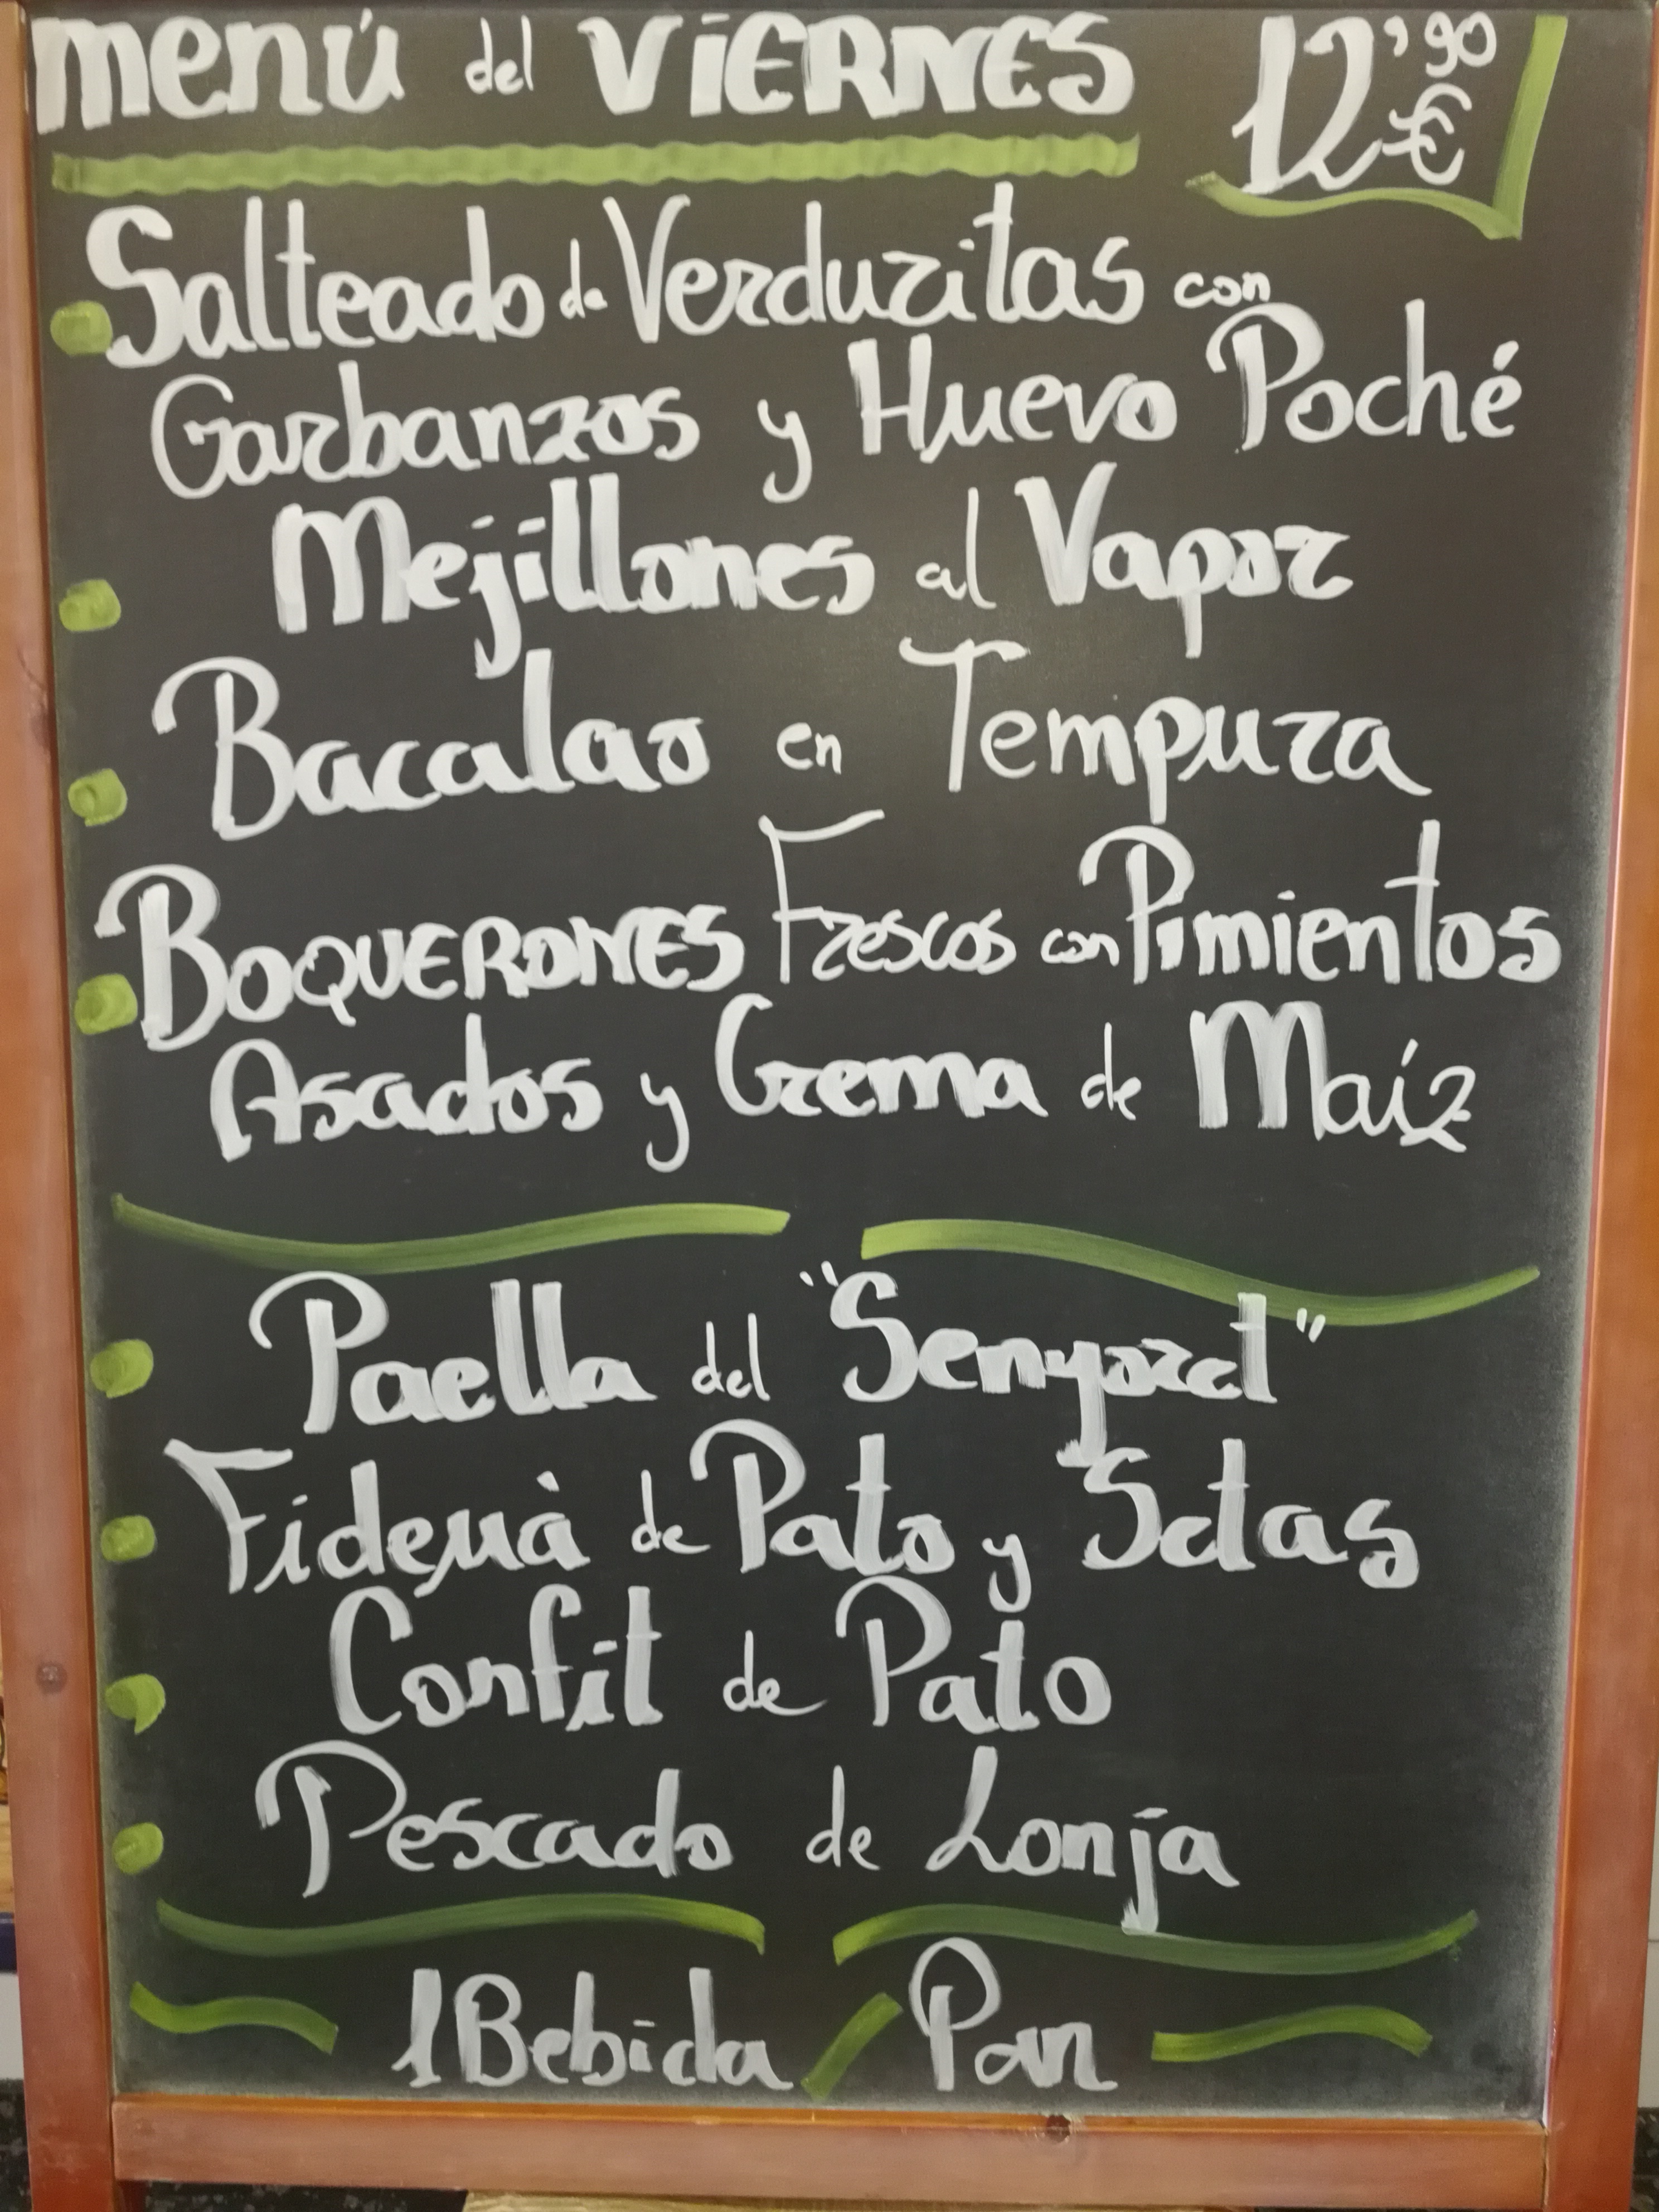 menú del ViERNES 12'90 €
Salteado de Verduritas con
Garbanzos y Huevo Poché
Mejillones al Vapor
Bacalao en Tempura
BOQUERONES Frescos con Pimientos
Asados y Crema de Maíz
Paella del "Senyoret"
Fideuà de Pato y Setas
Confit de Pato
Pescado de Lonja
1 Bebida / Pan